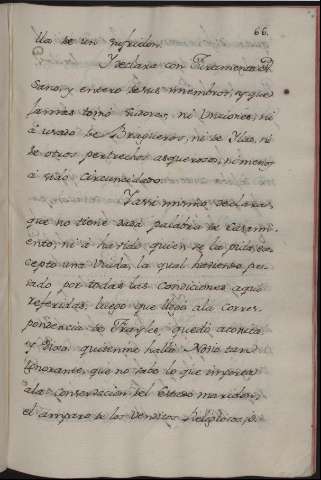 66.
lla de un sufridor.
Y declara con Juramento q.e
sano, y entero de sus miembros, y que
jamas tomó sudores, ni Unciones, ni
á usado de Bragueros, ni de hilas, ni
de otros pertrechos asquerosos, ni menos
á sido circuncidado.
Y assi mismo declara,
que no tiene dada palabra de Casami-
ento, ni á havido quien se la pida, ex-
cepto una Viuda, la qual haviendo pas-
sado por todas las Condiciones aqui
referidas, luego que llegó a la Corres-
pondencia de Frayles, quedó atonita,
y dixo: quitenme hallá Novio tan
Ignorante, que no sabe lo que importa
a la conservacion del Estado maridable
el amparo de los Venditos Religiosos, p.